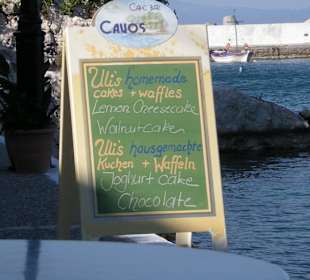 Cafe Bar
CAVOS
Uli's homemade
cakes + waffles
Lemon Cheesecake
Walnutcake
Uli's hausgemachte
Kuchen + Waffeln
Joghurt cake
Chocolate